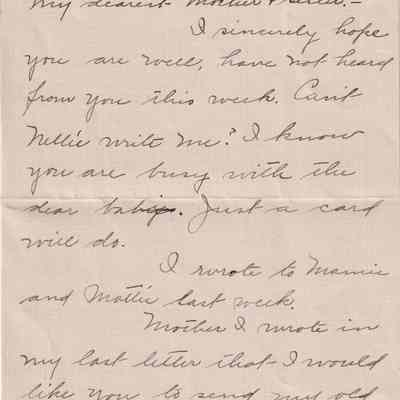 My dearest Mother & sister.—
I sincerely hope
you are well, have not heard
from you this week. Can't
Nellie write me? I know
you are busy with the
dear baby. Just a card
will do.
I wrote to Mamie
and Mattie last week.
Mother I wrote in
my last letter that I would
like you to send my old